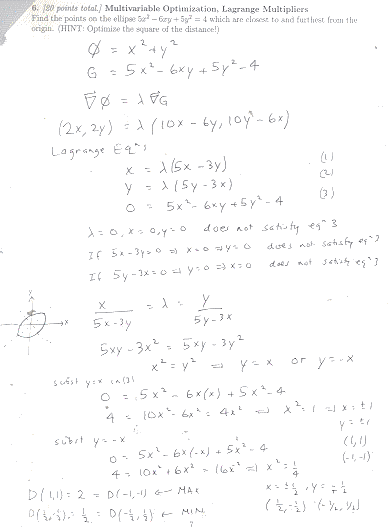 6. [80 points total.] Multivariable Optimization, Lagrange Multipliers
Find the points on the ellipse 5x² − 6xy + 5y² = 4 which are closest to and furthest from the
origin. (HINT: Optimize the square of the distance!)
∅ = x² + y²
G = 5x² − 6xy + 5y² − 4
∇∅ = λ ∇G
(2x, 2y) = λ (10x − 6y, 10y − 6x)
Lagrange Eqⁿs
x = λ(5x − 3y) (1)
y = λ(5y − 3x) (2)
0 = 5x² − 6xy + 5y² − 4 (3)
λ = 0, x = 0, y = 0 does not satisfy eqⁿ 3
If 5x − 3y = 0 ⇒ x = 0 ⇒ y = 0 does not satisfy eqⁿ 3
If 5y − 3x = 0 ⇒ y = 0 ⇒ x = 0 does not satisfy eqⁿ 3
y
x
x / (5x − 3y) = λ = y / (5y − 3x)
5xy − 3x² = 5xy − 3y²
x² = y² ⇒ y = x or y = −x
subst y = x in (3)
0 = 5x² − 6x(x) + 5x² − 4
4 = 10x² − 6x² = 4x² ⇒ x² = 1 ⇒ x = ±1
y = ±1
(1,1)
(−1,−1)
subst y = −x
0 = 5x² − 6x(−x) + 5x² − 4
4 = 10x² + 6x² = 16x² ⇒ x² = 1/4
x = ±1/2, y = ∓1/2
(1/2, −1/2) (−1/2, 1/2)
D(1,1) = 2 = D(−1,−1) ← MAX
D(1/2, −1/2) = 1/2 = D(−1/2, 1/2) ← MIN